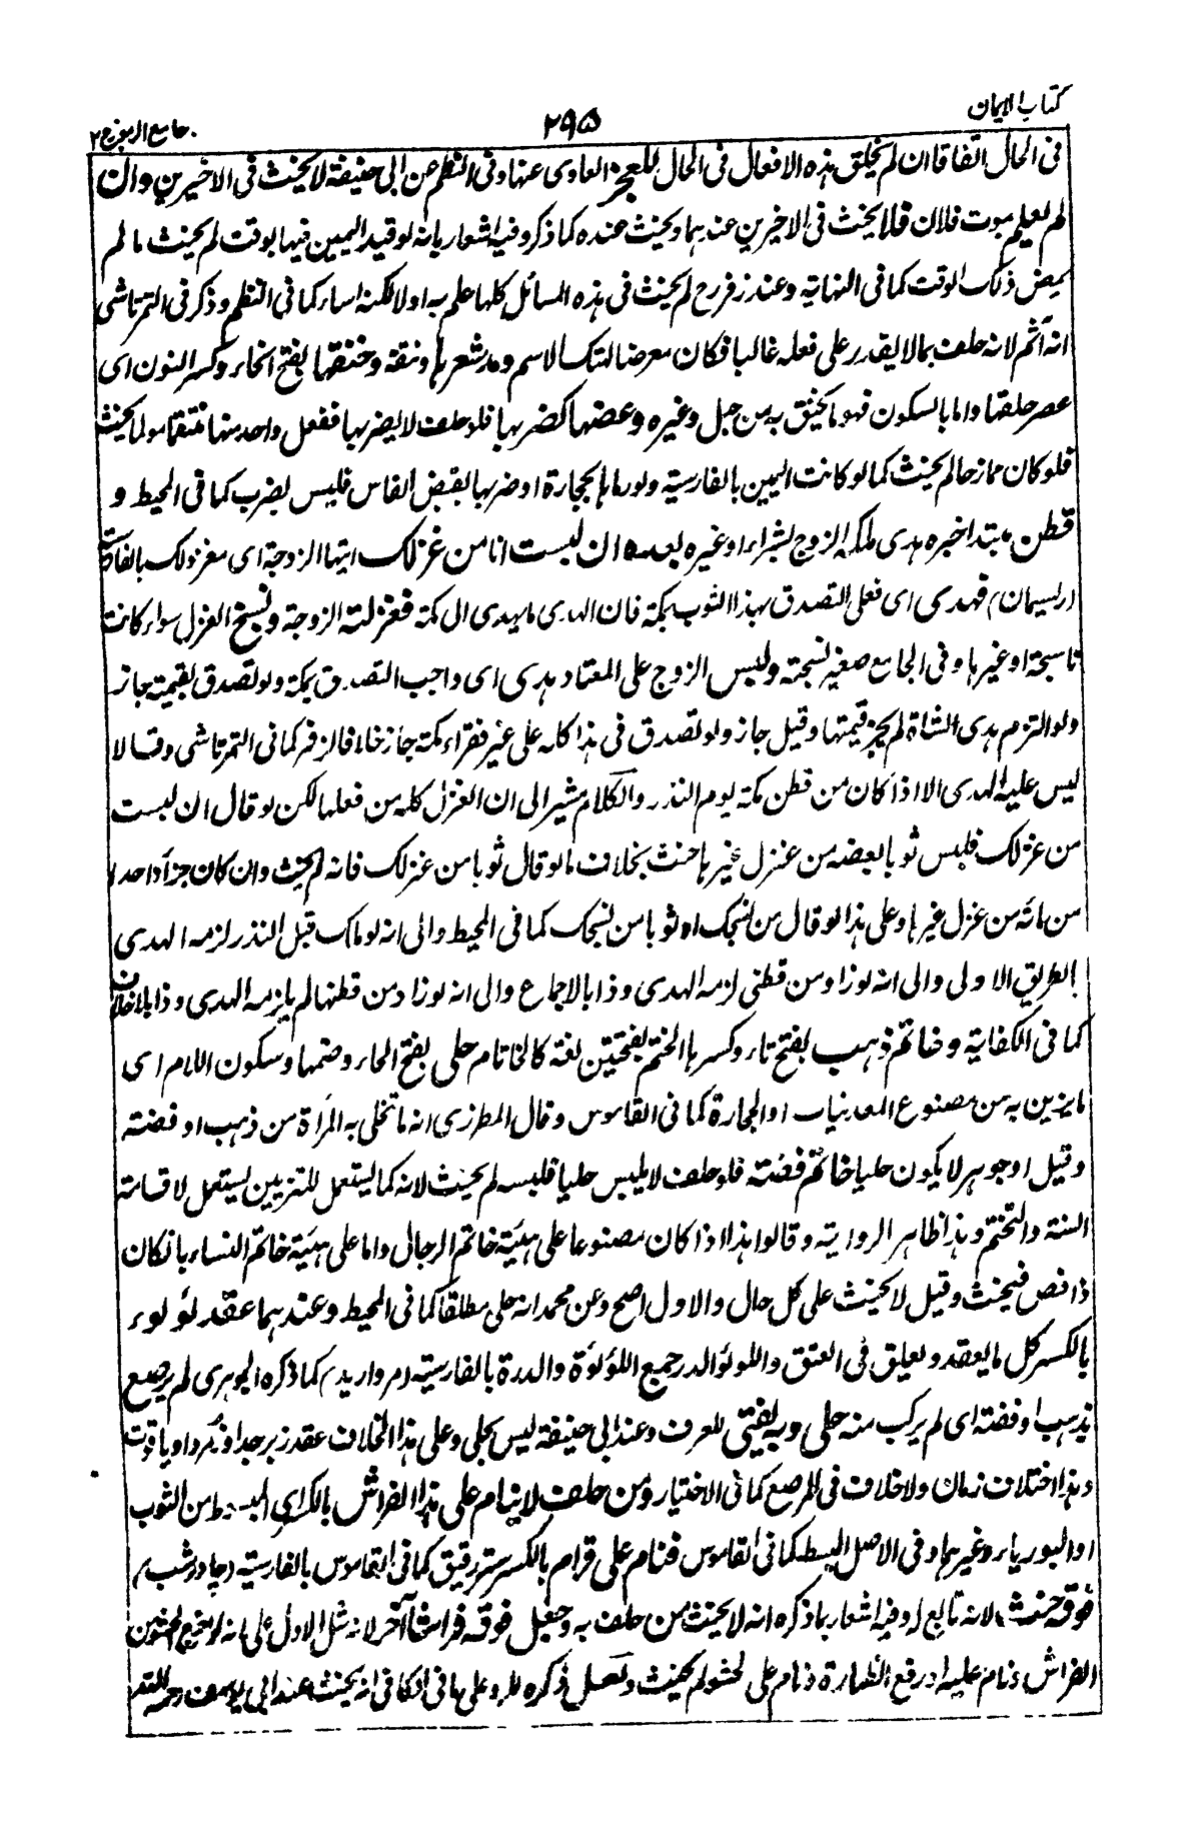 كتاب الايمان
٢٩٥
جامع الرموز ج ٢
فى الحال اتفاقا ان لم يخلق هذه الافعال فى الحال للعجز العادى عنها وفى النظم عن ابى حنيفة لا يحنث فى الاخيرين وان
لم يعلم بموت فلان فلا يحنث فى الاخيرين عندهما ويحنث عنده كما ذكر وفيه اشعار بانه لو قيد اليمين فيها بوقت لم يحنث ما لم
يمض ذلك الوقت كما فى النهاية وعند زفر رح لم يحنث فى هذه المسائل كلها علم به اولا لكنه اساء كما فى النظم وذكر فى التمرتاشى
انه آثم لانه حلف بما لا يقدر على فعله غالبا فكان معرضا لهتك الاسم ومد شعرها ونتفه وخنقها بفتح الخاء وكسر النون اى
عصر حلقها واما بالسكون فهو ما يخنق به من حبل وغيره وعضها كضربها فلو حلف لا يضربها ففعل واحد منها منتقما مولما يحنث
فلو كان ممازحا لم يحنث كما لو كانت اليمين بالفارسية ولو رماها بحجارة او ضربها بقبض الفاس فليس بضرب كما فى المحيط و
قطن مبتدا خبره هدى ملكه الزوج بشراء او غيره بعده ان لبست انا من غزلك ايتها الزوجة اى مغزولك بالفارسية
(ريسمان) فهدى اى فعلى التصدق بهذا الثوب بمكة فان الهدى ما يهدى الى مكة فغزلته الزوجة ونسج الغزل سواء كانت
ناسجة او غيرها وفى الجامع صغير نسجته ولبس الزوج على المعتاد هدى اى واجب التصدق بمكة ولو تصدق بقيمته جاز
ولو التزم هدى الشاة لم يجز قيمتها وقيل جاز ولو تصدق فى هذا كله على غير فقراء مكة جاز خلافا لزفر كما فى التمرتاشى وقالا
ليس عليه الهدى الا اذا كان من قطن مكه يوم النذر والكلام مشير الى ان الغزل كله من فعلها لكن لو قال ان لبست
من غزلك فلبس ثوبا بعضه من غزل غيرها حنث بخلاف ما لو قال ثوبا من غزلك فانه لم يحنث وان كان جزأ واحدا
من مائة من غزل غيرها وعلى هذا لو قال من نسجك او ثوبا من نسجك كما فى المحيط والى انه لو ملك قبل النذر لزمه الهدى
بالطريق الاولى والى انه لو زاد من قطنى لزمه الهدى وذا بالاجماع والى انه لو زاد من قطنها لم يلزمه الهدى وذا بلا خلاف
كما فى الكفاية وخاتم ذهب بفتح تاء وكسرها الختم بفتحتين لغة كالخاتام حلى بفتح الحاء وضمها وسكون اللام اى
ما يزين به من مصنوع المعدنيات او الحجارة كما فى القاموس وقال المطرزى انه ما تحلى به المرأة من ذهب او فضة
وقيل او جوهر لا يكون حليا خاتم فضة فلو حلف لا يلبس حليا فلبسه لم يحنث لانه كما يستعمل للتزيين يستعمل لاقامة
السنة والتختم وهذا ظاهر الرواية وقالوا هذا اذا كان مصنوعا على هيئة خاتم الرجال واما على هيئة خاتم النساء بان كان
ذا فص فيحنث وقيل لا يحنث على كل حال والاول اصح وعن محمد انه حلى مطلقا كما فى المحيط وعندهما عقد لؤلوء
بالكسر كل ما يعقد ويعلق فى العنق واللولؤ الدر جميع اللؤلوة والدرة بالفارسية (مرواريد) كما ذكره الجوهرى لم يرصع
بذهب او فضة اى لم يركب منه حلى وبه يفتى للعرف وعند ابى حنيفة ليس بحلى وعلى هذا الخلاف عقد زبرجد او زمرد او ياقوت
وهذا اختلاف زمان ولا خلاف فى المرصع كما فى الاختيار ومن حلف لا ينام على هذا الفراش بالكسر اى المبسوط من الثوب
او البورياء وغيرهما وفى الاصل البسط كما فى القاموس فنام على قرام بالكسر ستر رقيق كما فى القاموس بالفارسية (چادر شب)
فوقه حنث لانه تابع له وفيه اشعار بما ذكره انه لا يحنث من حلف به وجعل فوقه فراشا آخر لانه مثل الاول على انه لو اخرج الحشو من
الفراش ونام عليه او رفع الظهارة ونام على الحشو لم يحنث ولعل ذكره للرد على ما فى الكافى انه يحنث عند ابى يوسف رحمه الله